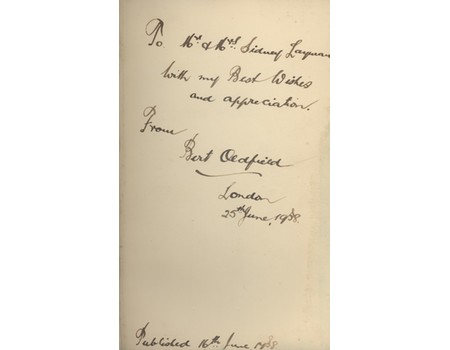 To Mr & Mrs Sidney Layman
With my Best Wishes
and appreciation.
From
Bert Oldfield
London
25th June, 1938.
Published 16th June 1938